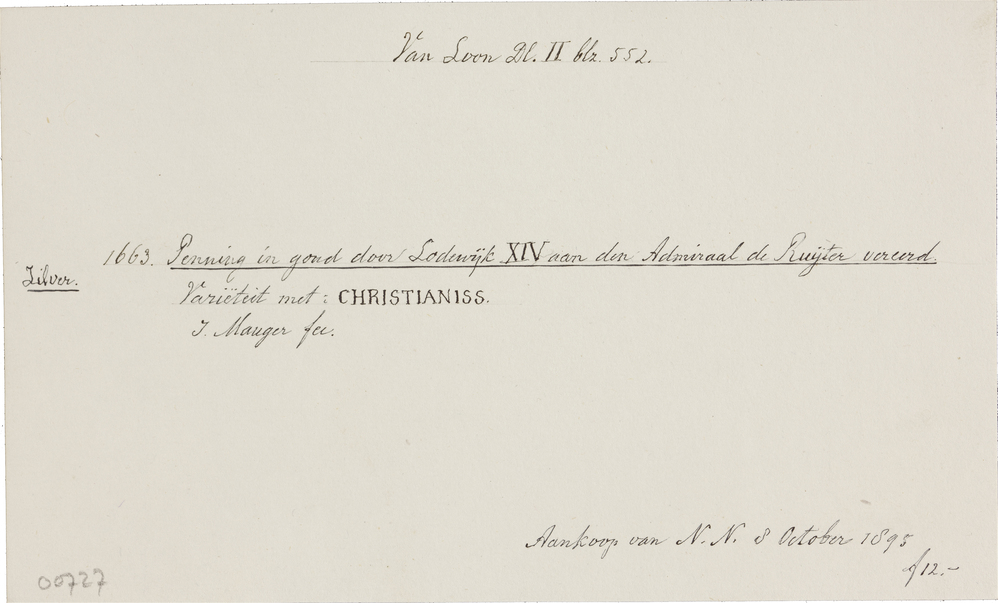 Van Loon Dl. II blz. 552.
1663. Penning in goud door Lodewijk XIV aan den Admiraal de Ruijter vereerd.
Zilver.
Variëteit met: CHRISTIANISS.
J. Mauger fec.
Aankoop van N. N. 8 October 1895
f 12.-
00727